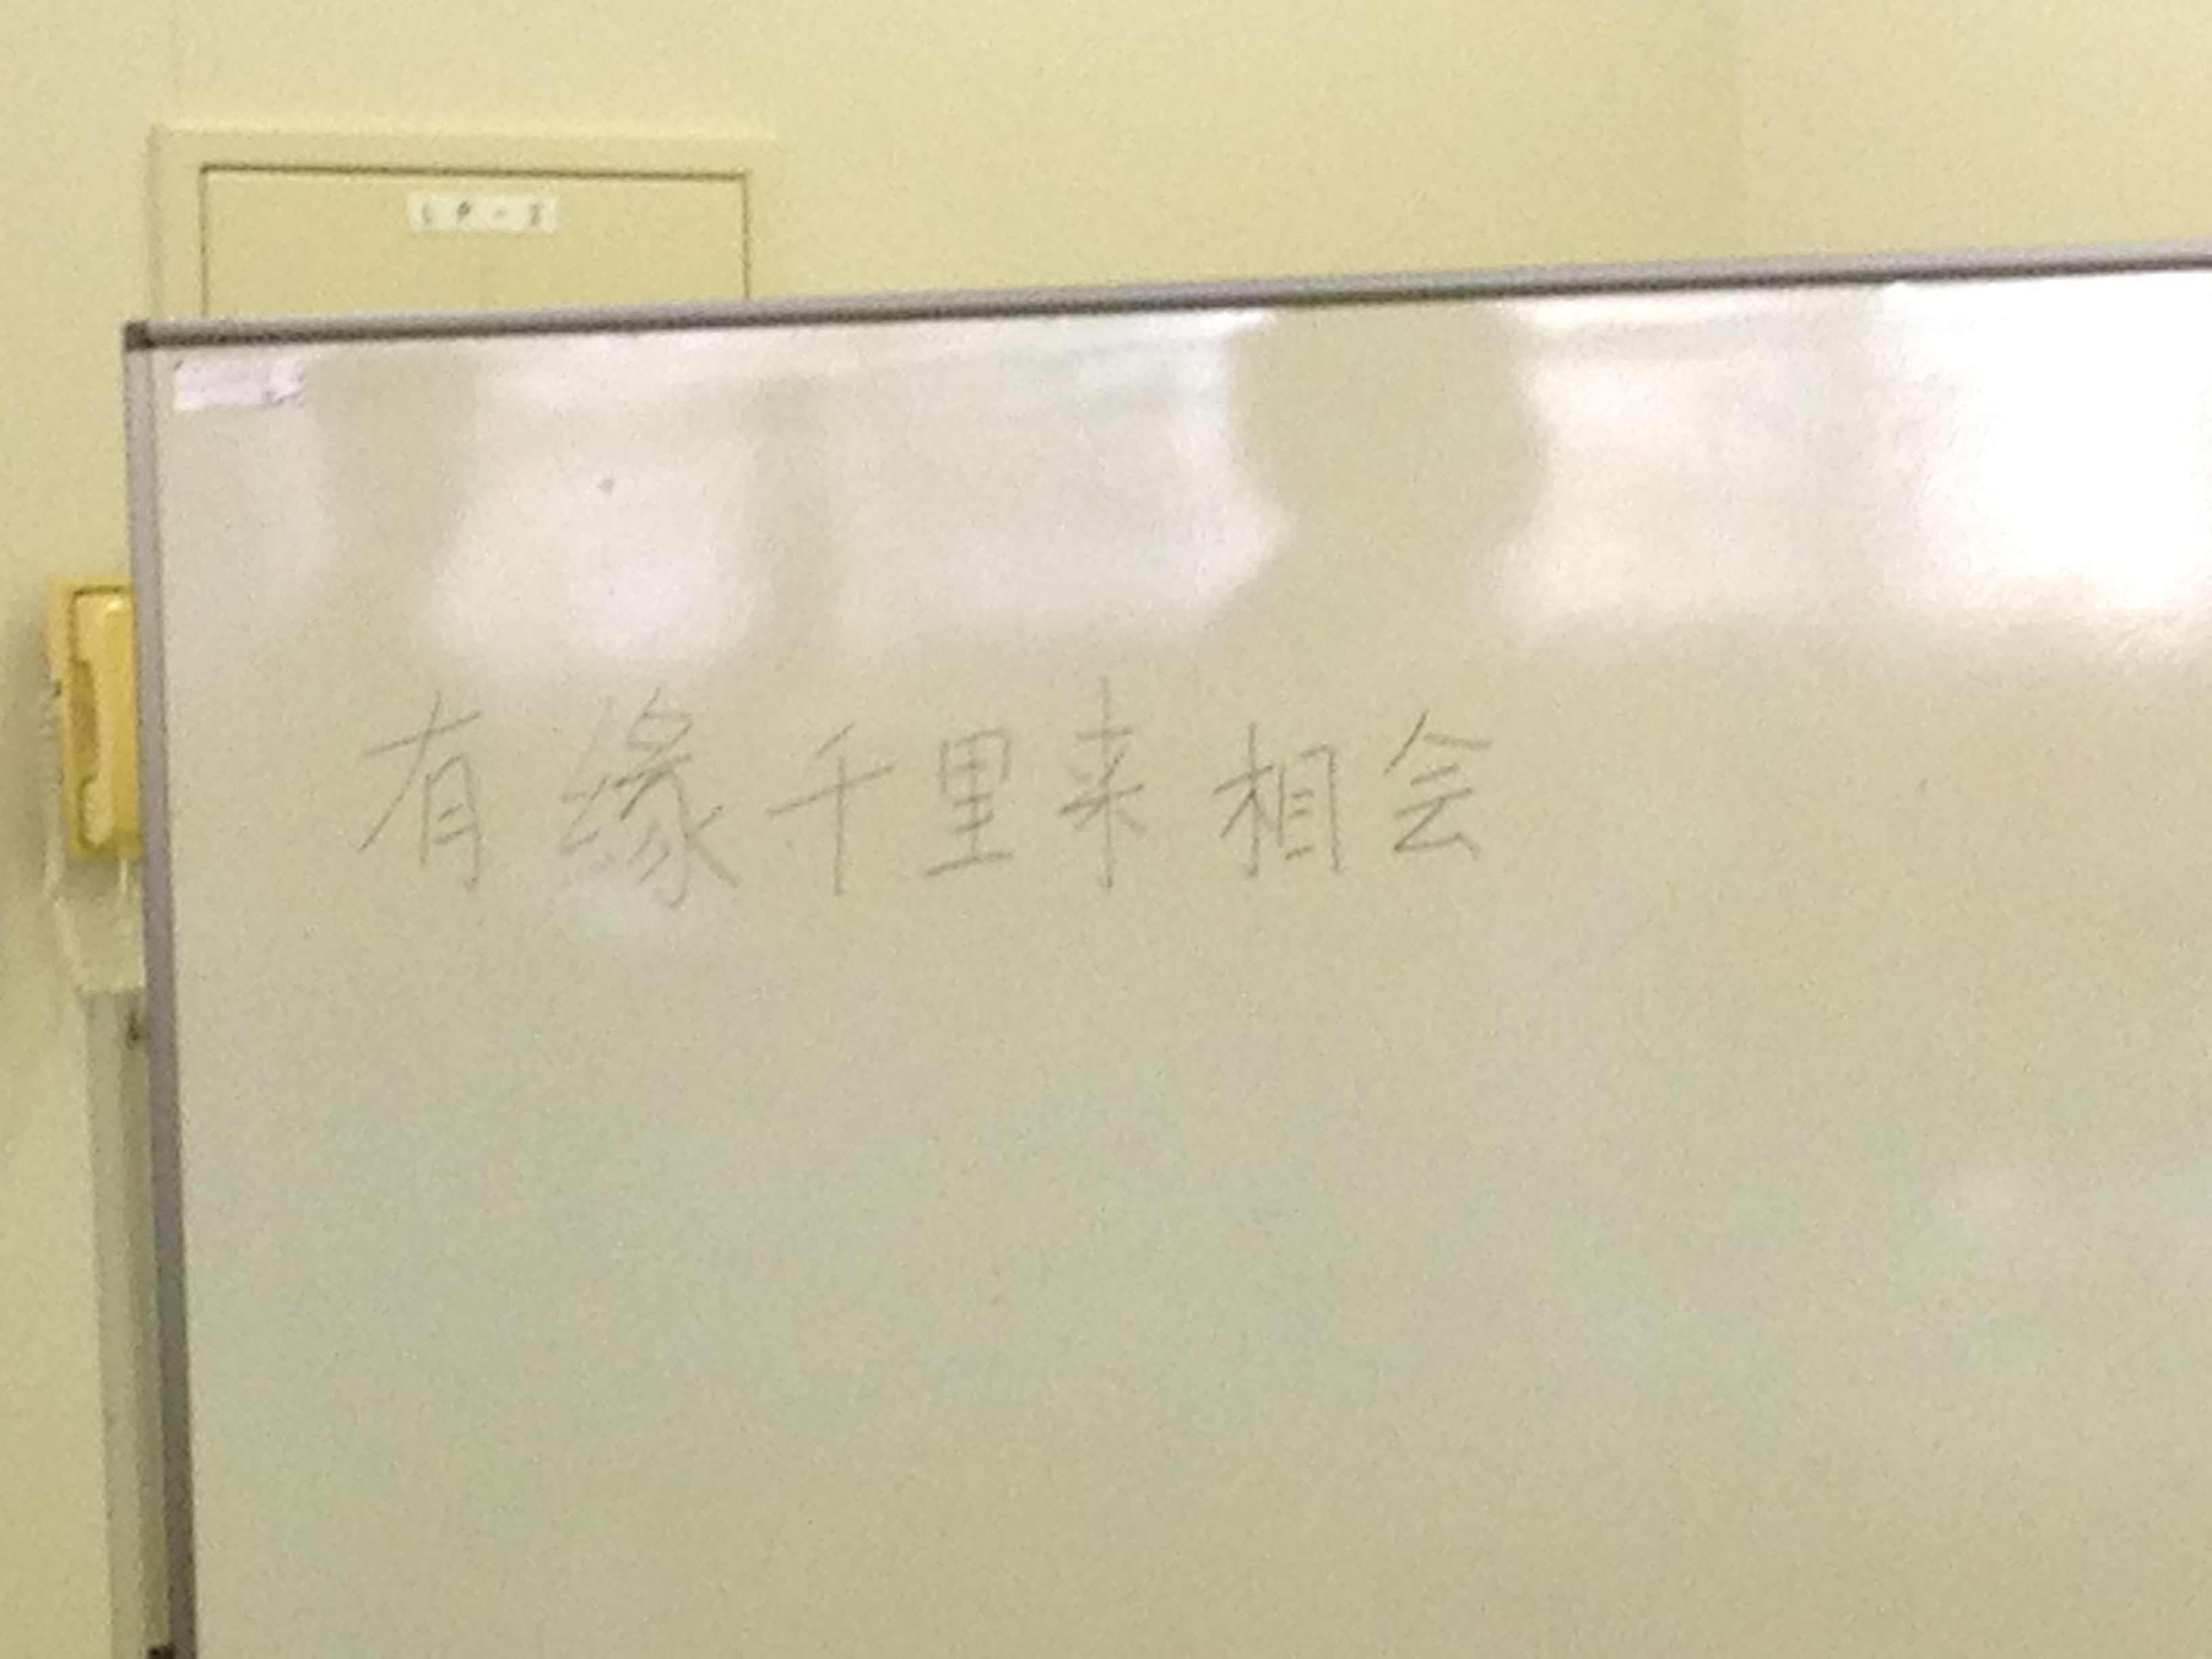 有縁千里来相会